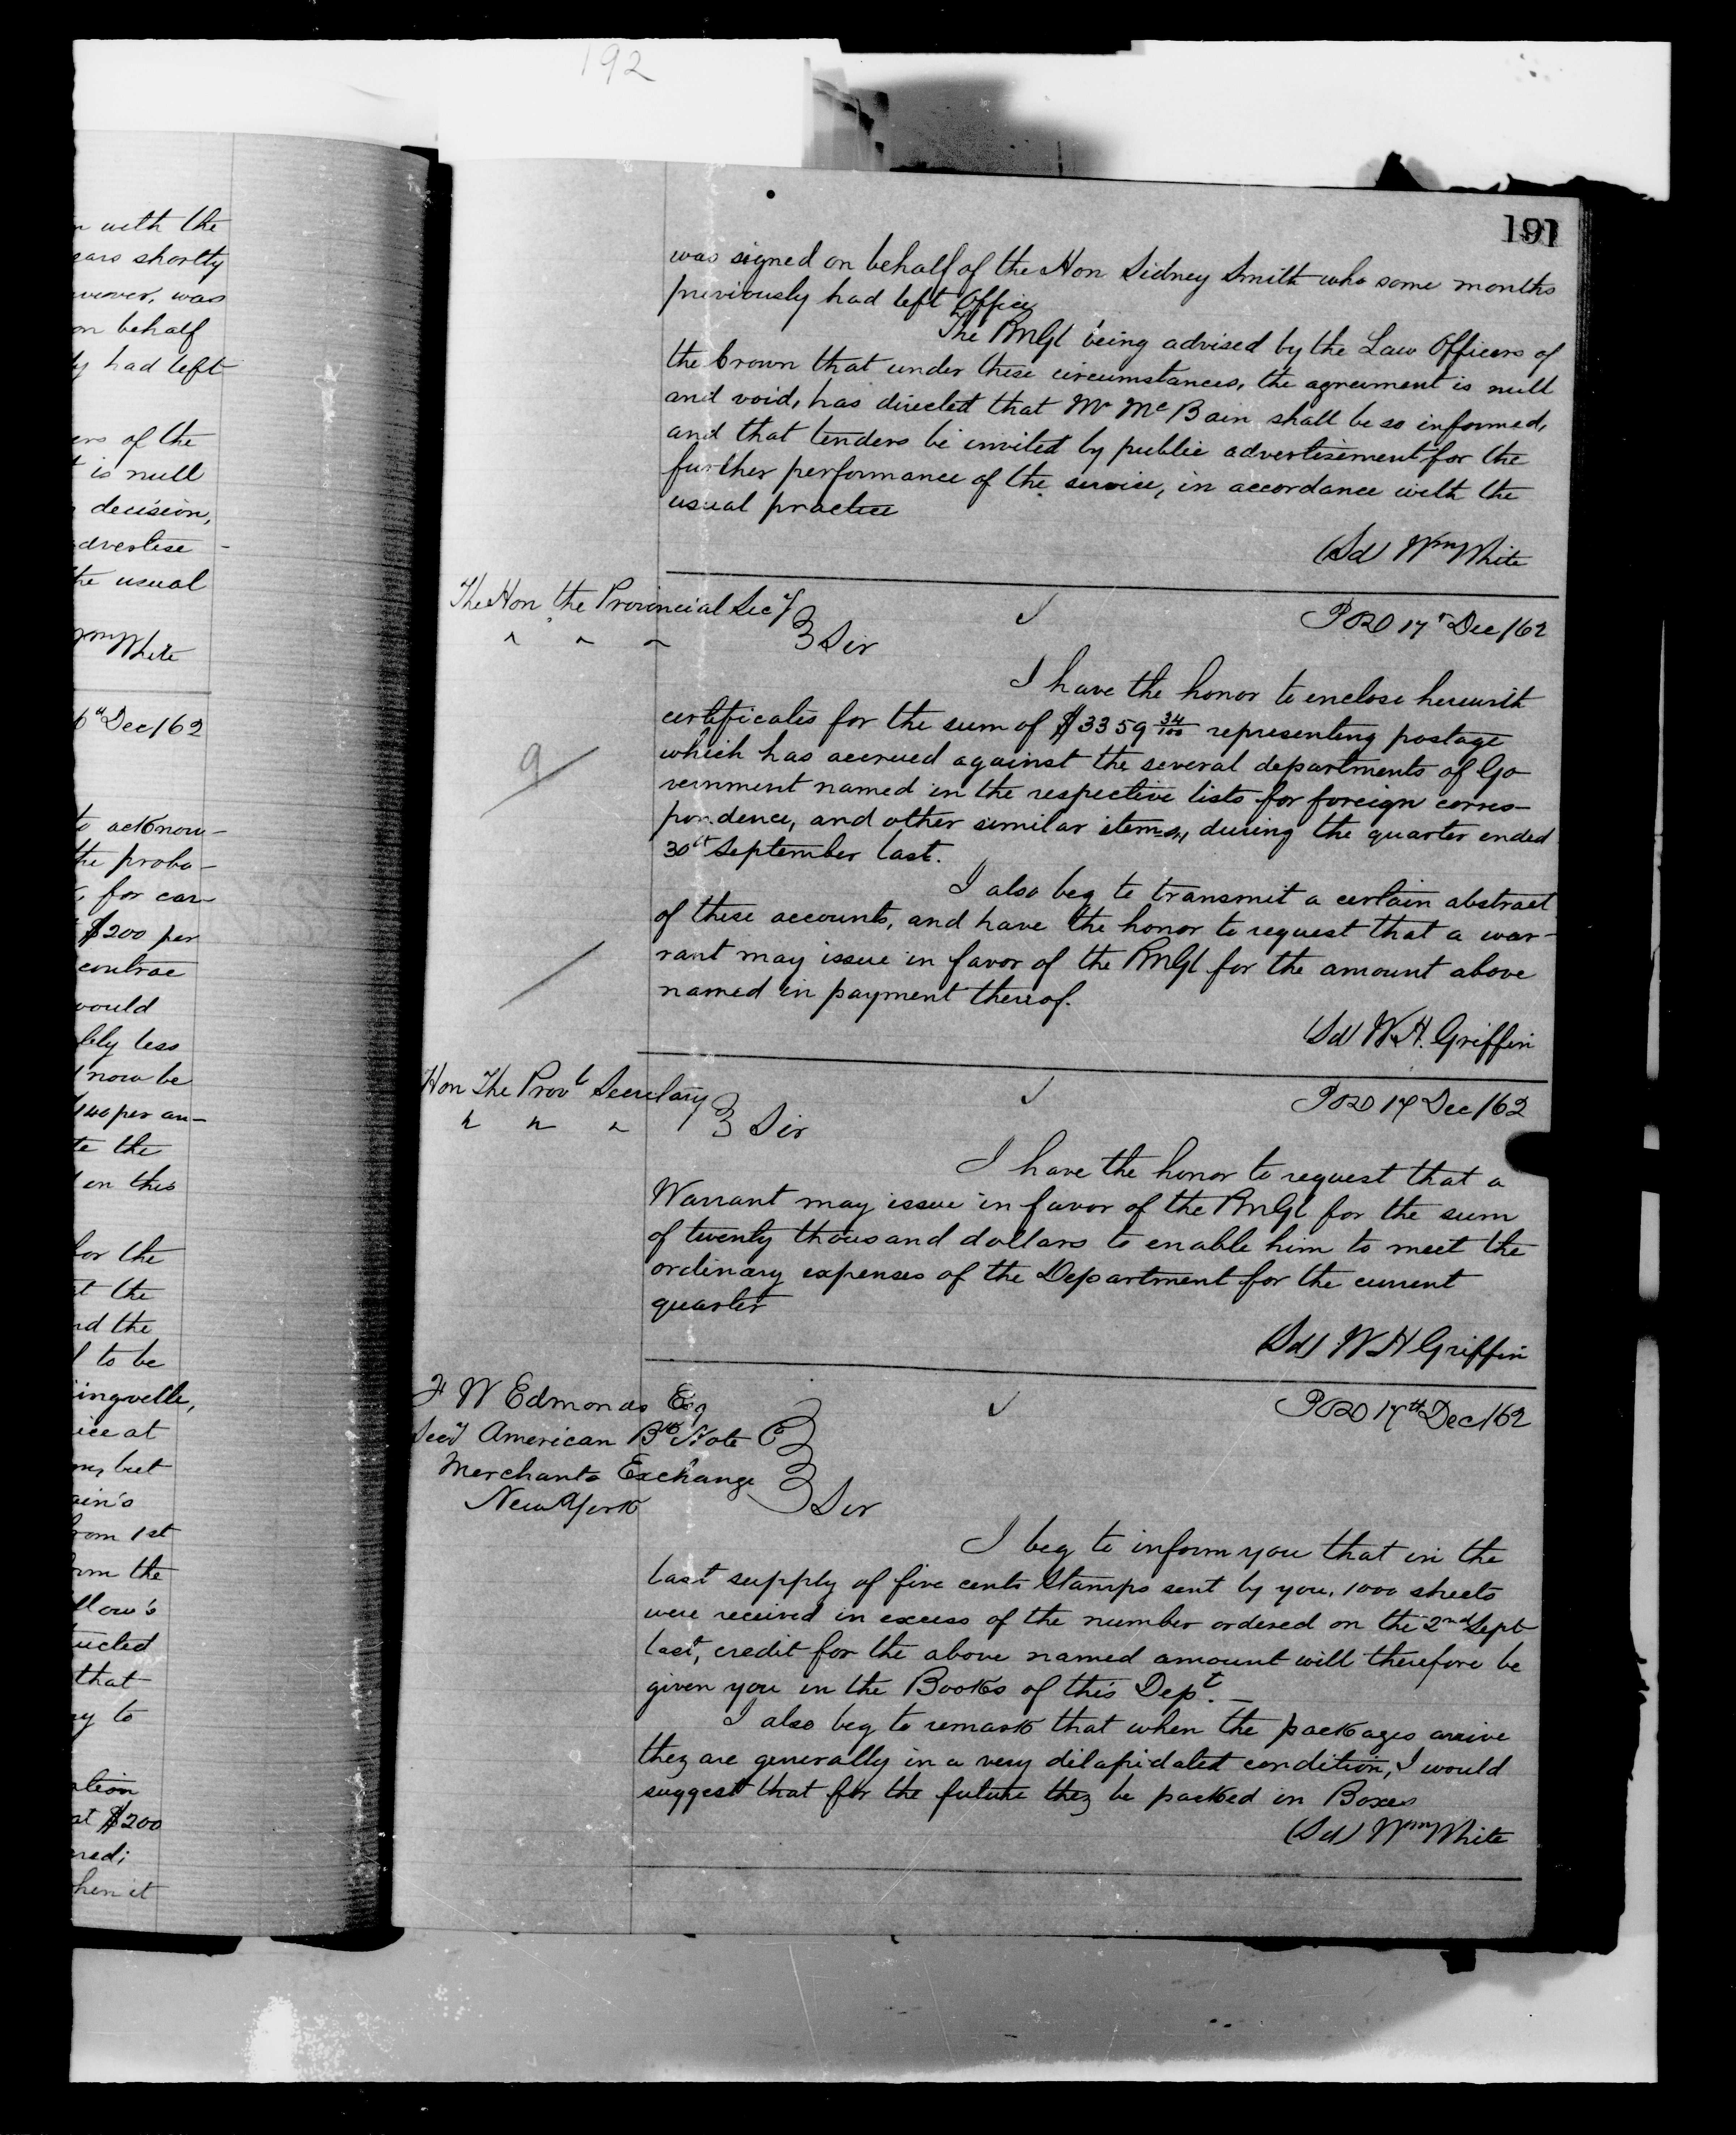 192
191
n with the
ears shortly
wever, was
on behalf
ly had left
ers of the
t is null
decision,
advertise -
the usual
Wm White
6th Dec/62
to acknow-
the proba-
for car-
$200 per
contrac
would
bly less
now be
140 per an-
te the
on this
for the
at the
nd the
to be
ingville,
ice at
but
ain's
from 1st
rm the
llow's
ucted
that
ry to
ation
at $200
red;
hen it
was signed on behalf of the Hon Sidney Smith who some months
previously had left Office
The PMGl being advised by the Law Officers of
the Crown that under these circumstances, the agreement is null
and void, has directed that Mr McBain shall be so informed,
and that tenders be invited by public advertisement for the
further performance of the service, in accordance with the
usual practice
(Sd) Wm White
The Hon the Provincial Secy
" " " } Sir
POD 17 Dec/62
I have the honor to enclose herewith
certificates for the sum of $3359 34/100 representing postage
which has accrued against the several departments of Go
vernment named in the respective lists for foreign corres-
pondence, and other similar items, during the quarter ended
30th September last.
9
I also beg to transmit a certain abstract
of these accounts, and have the honor to request that a war-
rant may issue in favor of the PMGl for the amount above
named in payment thereof.
(Sd) W.H. Griffin
Hon The Provl Secretary
" " " } Sir
POD 17 Dec/62
I have the honor to request that a
Warrant may issue in favor of the PMGl for the sum
of twenty thousand dollars to enable him to meet the
ordinary expenses of the Department for the current
quarter
(Sd) W H Griffin
F W Edmonds Esq
Secy American Bk Note Co
Merchants Exchange
New York } Sir
POD 17th Dec/62
I beg to inform you that in the
last supply of five cents Stamps sent by you, 1000 sheets
were received in excess of the number ordered on the 2nd Sept
last, credit for the above named amount will therefore be
given you in the Books of this Dept. -
I also beg to remark that when the packages arrive
they are generally in a very dilapidated condition, I would
suggest that for the future they be packed in Boxes
(Sd) Wm White